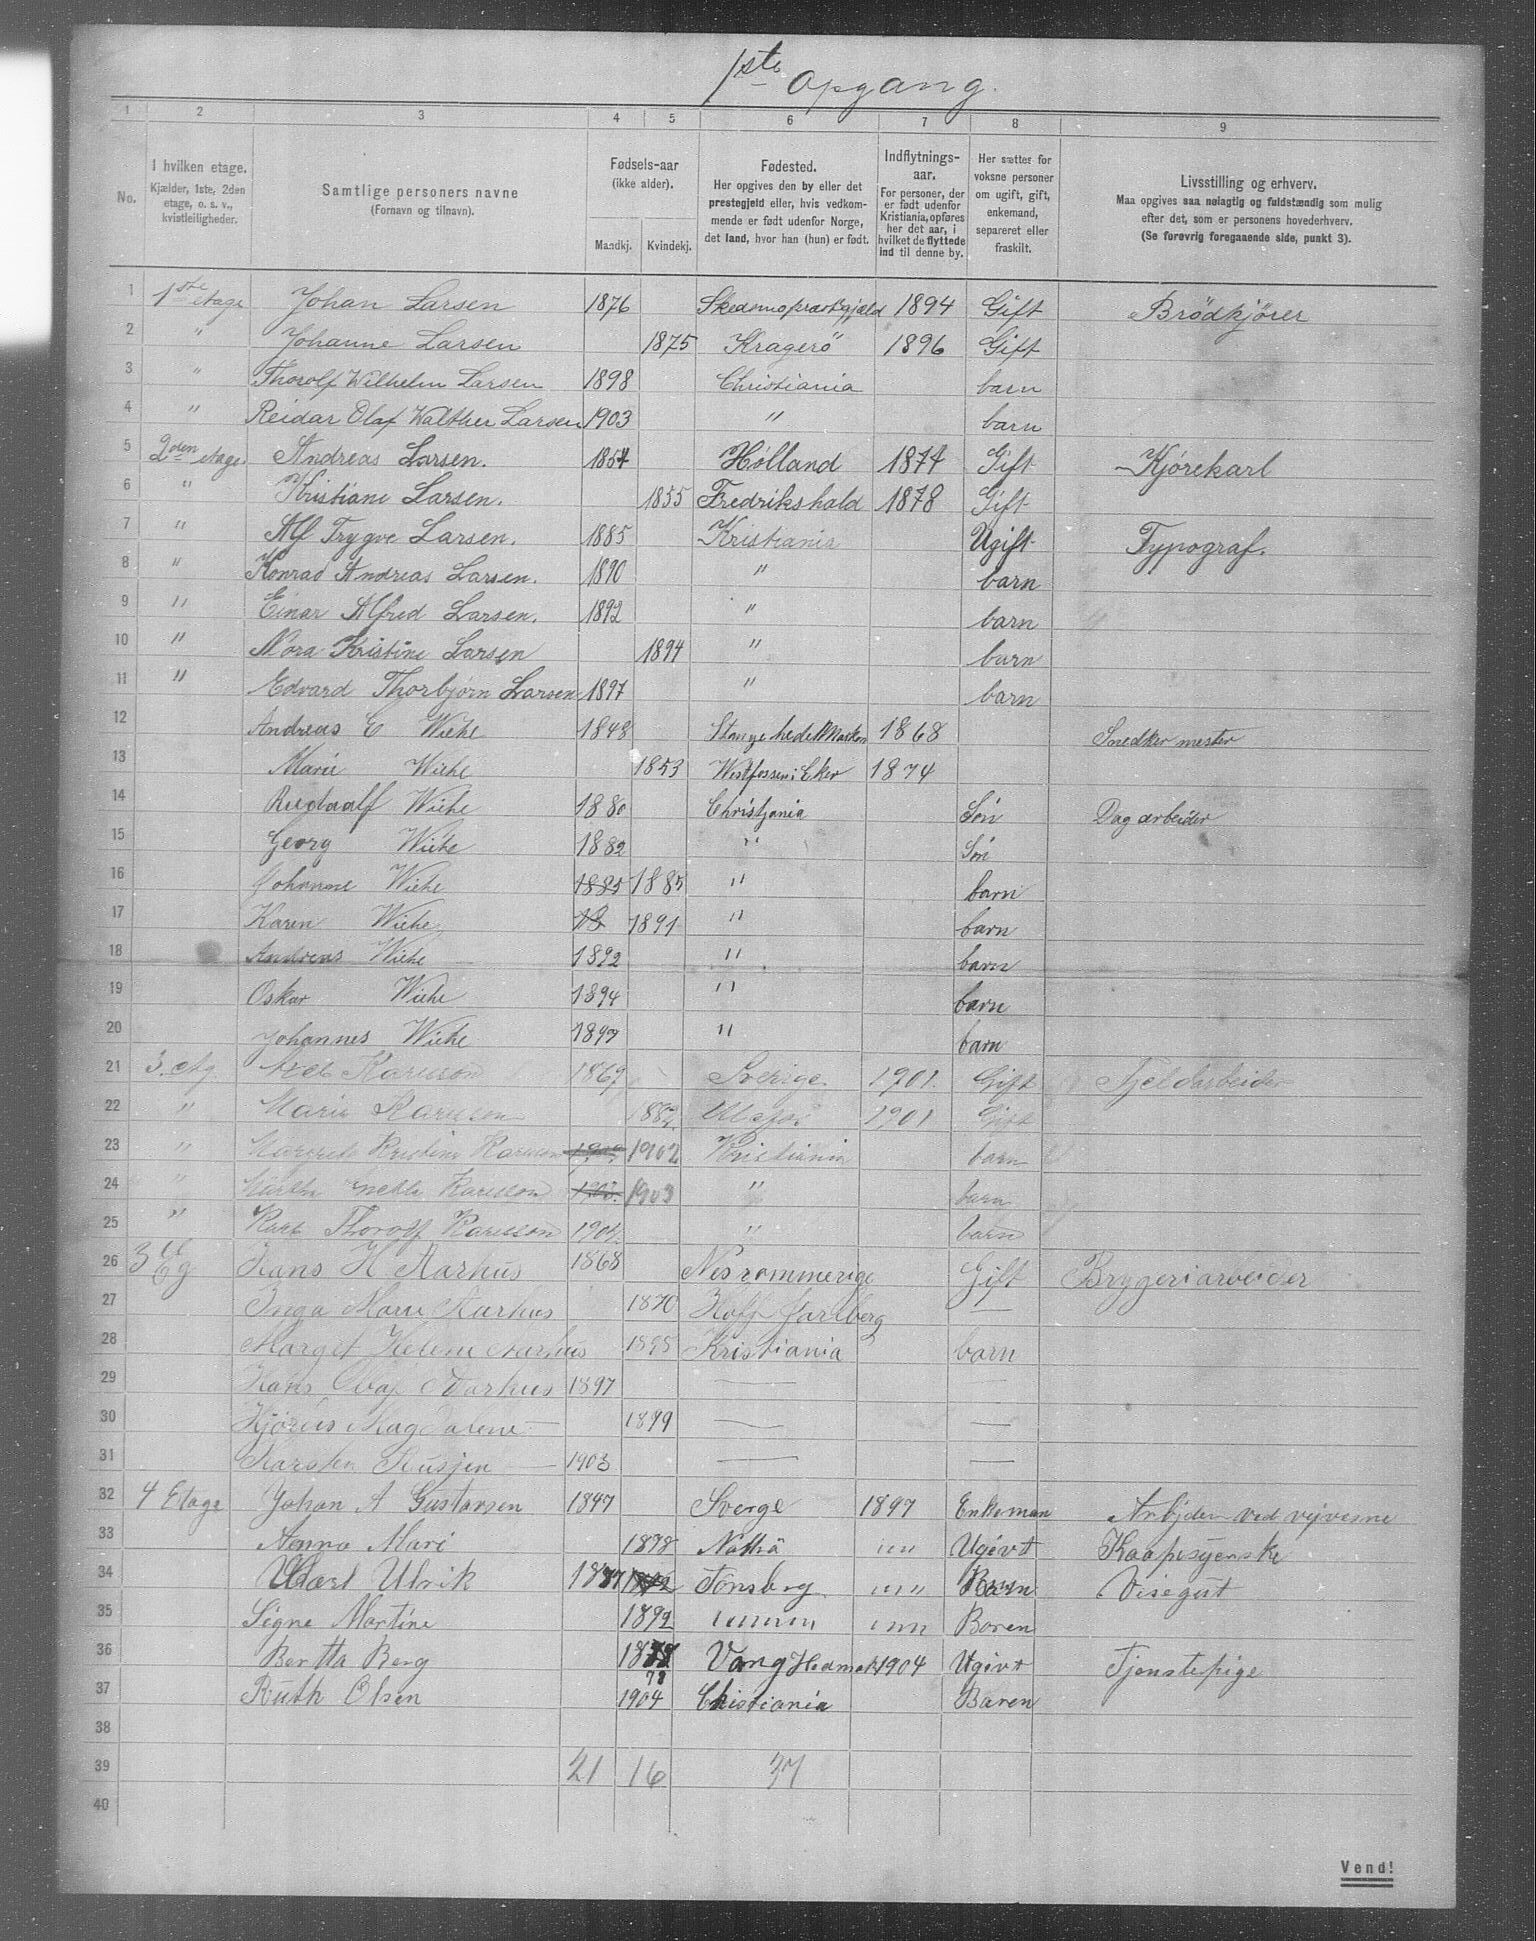 1ste opgang.
1 2 3 4 5 6 7 8 9
No. I hvilken etage. Kjælder, 1ste, 2den etage, o. s. v., kvistleiligheder. Samtlige personers navne (Fornavn og tilnavn). Fødsels-aar (ikke alder). Mandkj. Kvindekj. Fødested. Her opgives den by eller det prestegjeld eller, hvis vedkommende er født udenfor Norge, det land, hvor han (hun) er født. Indflytnings-aar. For personer, der er født udenfor Kristiania, opføres her det aar, i hvilket de flyttede ind til denne by. Her sættes for voksne personer om ugift, gift, enkemand, separeret eller fraskilt. Livsstilling og erhverv. Maa opgives saa nøiagtig og fuldstændig som mulig efter det, som er personens hovederhverv. (Se forøvrig foregaaende side, punkt 3).
1 1ste etage Johan Larsen 1876 Skedsmopræstgjæld 1894 Gift Brödkjører
2 " Johanne Larsen 1875 Kragerö 1896 Gift
3 " Thorolf Wilhelm Larsen 1898 Christiania barn
4 " Reidar Olaf Walther Larsen 1903 " barn
5 2den etage. Andreas Larsen. 1854 Hølland 1874 Gift Kjørekarl
6 " Kristiane Larsen. 1855 Fredrikshald 1878 Gift
7 " Alf Trygve Larsen. 1885 Kristiania Ugift Typograf.
8 " Konrad Andreas Larsen. 1890 " barn
9 " Einar Alfred Larsen. 1892 " barn
10 " Nora Kristine Larsen 1894 " barn
11 " Edvard Thorbjørn Larsen 1897 " barn
12 Andreas E Wiehe 1848 Stange hedeMarken 1868 Snedker mester
13 Marie Wiehe 1853 Westfossen i Eker 1874
14 Rudaalf Wiehe 1880 Christjania Søn Dagarbeider
15 Georg Wiehe 1882 " Søn
16 Johanne Wiehe 1885 1885 " barn
17 Karen Wiehe 18 1891 " barn
18 Andreas Wiehe 1892 " barn
19 Oskar Wiehe 1894 " barn
20 Johannes Wiehe 1897 " barn
21 3. Etg. Axel Karlsson 1869 Sverige 1901. Gift Fjeldarbeider
22 " Marie Karlsson 1882 1901 Gift
23 " Margrete Kristine Karlsson 1902 Kristiania barn
24 " Karlsson 1903 1903 " barn
25 " Karl Thorolf Karlsson 1904 " barn
26 3 Etg Hans H Aarhus 1868 Nesrommerige Gift Bryggeriarbeider
27 Inga Marie Aarhus 1870 Hoff Jarlberg —
28 Margit Helene Aarhus 1895 Kristiania barn
29 Hans Olaf Aarhus 1897 — —
30 Hjørdis Magdalene — 1899 — —
31 Karsten — 1903 —
32 4 Etage Johan A Gustavsen 1847 Sverge 1897 Enkeman Arbjder ved vejvesne
33 Anna Mari 1878 "" Ugivt Kaapesyerske
34 Karl Ulrik 1887 Tønsberg "" Baren Visegut
35 Signe Martine 1892 """ "" Baren
36 Bertta Berg 1878 78 Vang Hedmark 1904 Ugivt Tjenstepige
37 Ruth Olsen 1904 Christiania Baren
38
39 21 16 37
40
Vend!